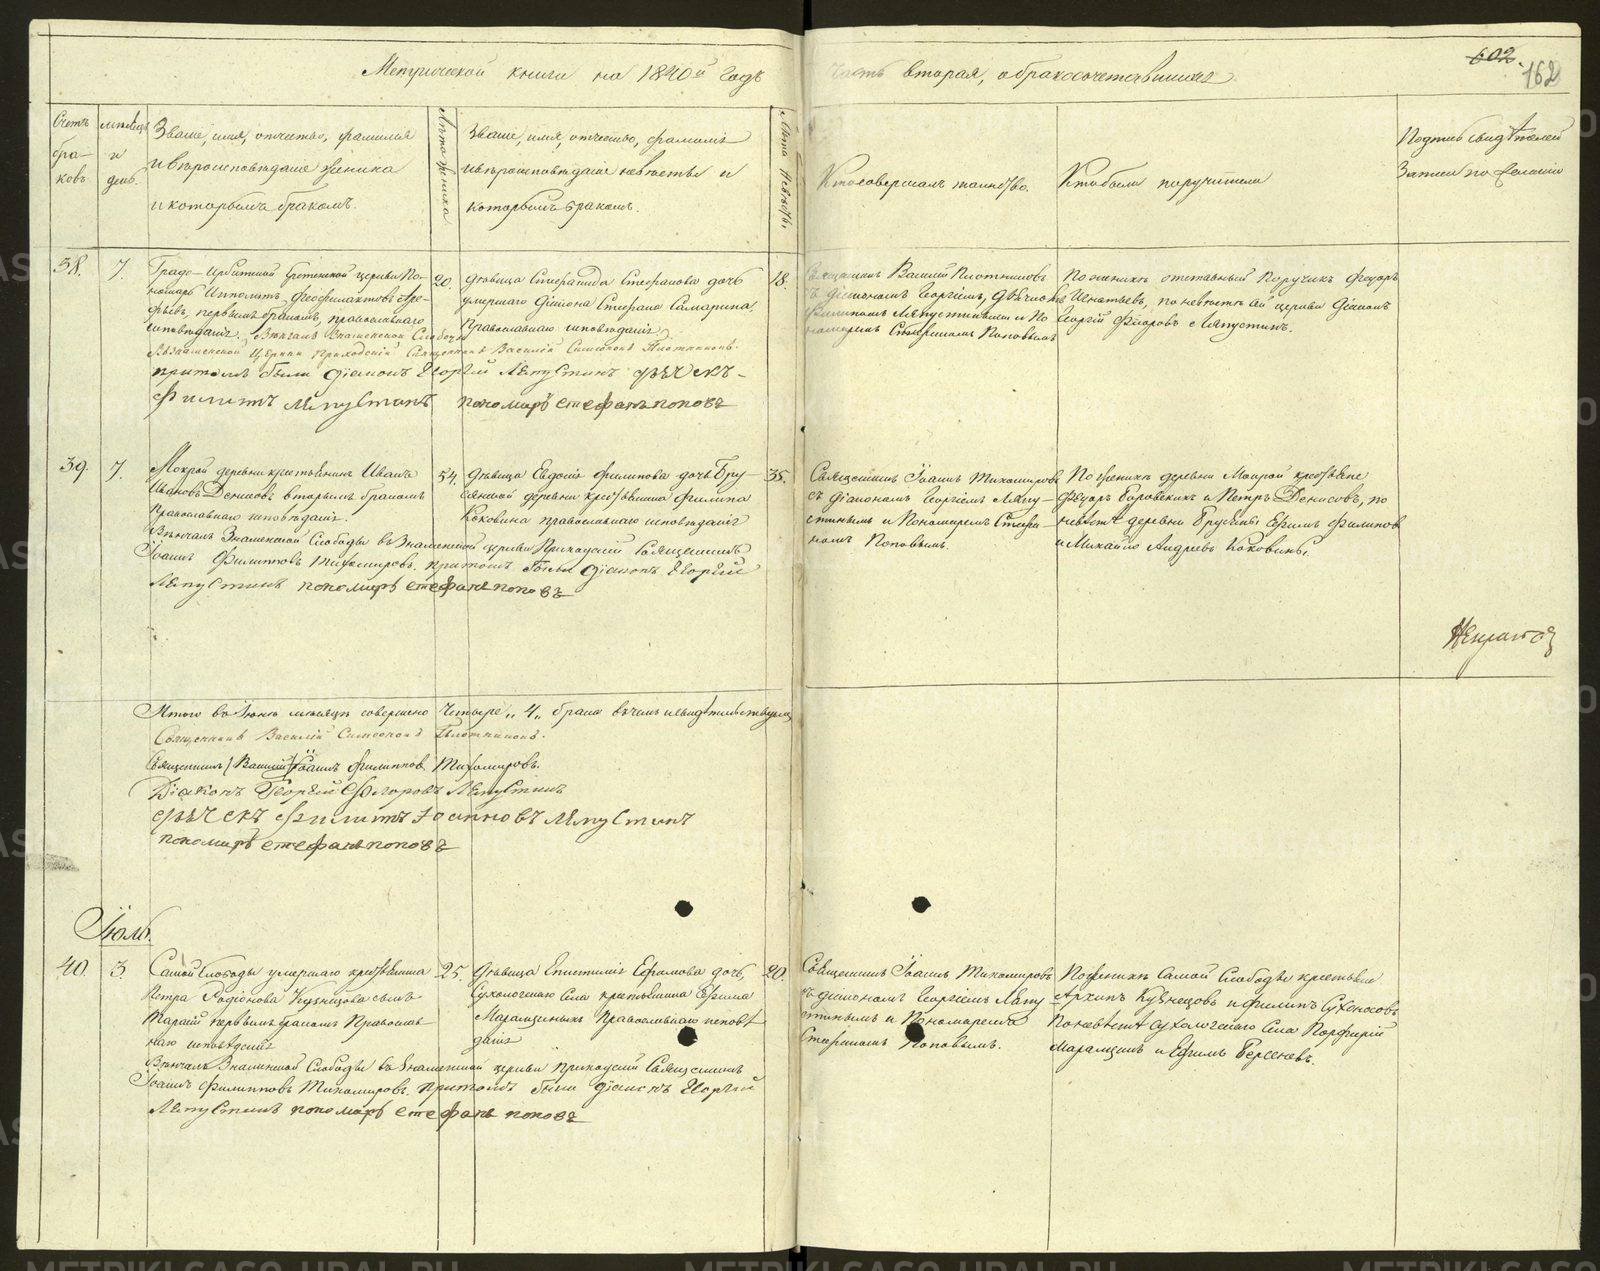 Метрической книги на 1840й годъ
часть вторая, о бракосочетавшихся.
602.
162
Счетъ браковъ.
мѣсяцъ и день.
Званіе, имя, отчество, фамилія
и вѣроисповѣданіе жениха
и которымъ бракомъ.
Лѣта жениха
Званіе, имя, отчество, фамилія
и вѣроисповѣданіе невѣсты и
которымъ бракомъ.
Лѣта невѣсты
Кто совершалъ таинство.
Кто были поручители
Подпись свидѣтелей
записи по желанію
38.
7.
Градо-Ирбитской Срѣтенской церкви По-
номарь Ипполитъ Феофилактовъ
первымъ бракомъ, православнаго
исповѣданія. Вѣнчалъ Знаменской Слободы
Знаменской Церкви Приходскій Священникъ Василій Симеоновъ Плотниковъ.
притомъ были Діаконъ Георгій Ляпустинъ дьячекъ
Филиппъ Ляпустинъ пономарь Стефанъ Поповъ
20.
Дѣвица Стефанида Стефанова дочь
умершаго Діакона Стефана Самарина,
Православнаго исповѣданія
18.
Священникъ Василій Плотниковъ
съ діакономъ Георгіемъ, дьячкомъ
Филиппомъ Ляпустинымъ и По-
номаремъ Стефаномъ Поповымъ
По женихѣ отставный Поручикъ Федоръ
Игнатьевъ, по невѣстѣ сей церкви діаконъ
Георгій Флоровъ Ляпустинъ.
39.
7.
Мокрой деревни крестьянинъ Иванъ
Ивановъ Денисовъ вторымъ бракомъ
Православнаго исповѣданія.
Вѣнчалъ Знаменской Слободы въ Знаменской церкви Приходскій Священникъ
Іоаннъ Филипповъ Тихомировъ. притомъ были Діаконъ Георгій
Ляпустинъ пономарь Стефанъ Поповъ
54.
Дѣвица Евдокія Филипова дочь Бру-
сяной деревни крестьянина Филипа
Коковина православнаго исповѣданія
35.
Священникъ Іоаннъ Тихомировъ
съ діакономъ Георгіемъ Ляпу-
стинымъ и Пономаремъ Стефа-
номъ Поповымъ.
По женихѣ деревни Мокрой крестьяне
Федоръ Боровскихъ и Петръ Денисовъ, по
невѣстѣ деревни Брусяны Ефимъ Филипов
и Михайло Андреевъ Коковины.
Итого въ Іюнѣ мѣсяцѣ совершено четыре „4„ брака въ чемъ и свидѣтельствуемъ
Священникъ Василій Симеоновъ Плотниковъ.
Священникъ (Василій) Іоаннъ Филиппов Тихомировъ.
Діаконъ Георгій Флоровъ Ляпустинъ
дьячекъ Филиппъ Іоанновъ Ляпустинъ
пономарь Стефанъ Поповъ
Іюль.
40.
3.
Самой Слободы умершаго крестьянина
Петра Родіонова Кузнецова сынъ
первымъ бракомъ Православ-
наго исповѣданія
Вѣнчалъ Знаменской Слободы въ Знаменской церкви приходскій Священникъ
Іоаннъ Филипповъ Тихомировъ. притомъ были діаконъ Георгій
Ляпустинъ пономарь Стефанъ Поповъ
25.
Дѣвица Епистимія Ефимова дочь,
Сухологскаго Села крестьянина Ефима
Марамзиныхъ Православнаго исповѣ-
данія
20.
Священникъ Іоаннъ Тихомировъ
съ діакономъ Георгіемъ Ляпу-
стинымъ и Пономаремъ
Стефаномъ Поповымъ.
По женихѣ Самой Слободы крестьяне
Архипъ Кузнецовъ и Филипъ Сухоносовъ
По невѣстѣ Сухологскаго Села Порфирій
Марамзинъ и Ефимъ Берсеневъ.
METRIKI.GASO-URAL.RU